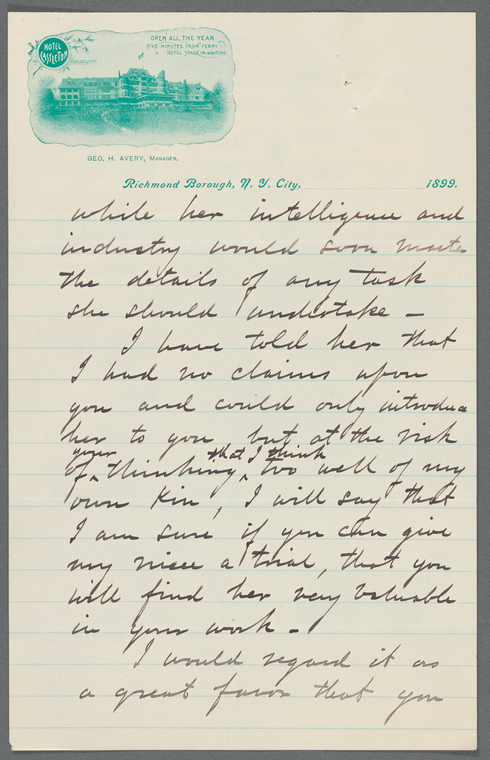 HOTEL
CASTLETON
OPEN ALL THE YEAR
FIVE MINUTES FROM FERRY
HOTEL STAGE IN WAITING
GEO. H. AVERY, MANAGER.
Richmond Borough, N. Y. City, 1899.
while her intelligence and
industry would soon master
the details of any task
she should undertake –
I have told her that
I had no claims upon
you and could only introduce
her to you, but at the risk
your that I think
of ^ thinking ^ too well of my
own kin, I will say that
I am sure if you can give
my niece a trial, that you
will find her very valuable
in your work –
I would regard it as
a great favor that you